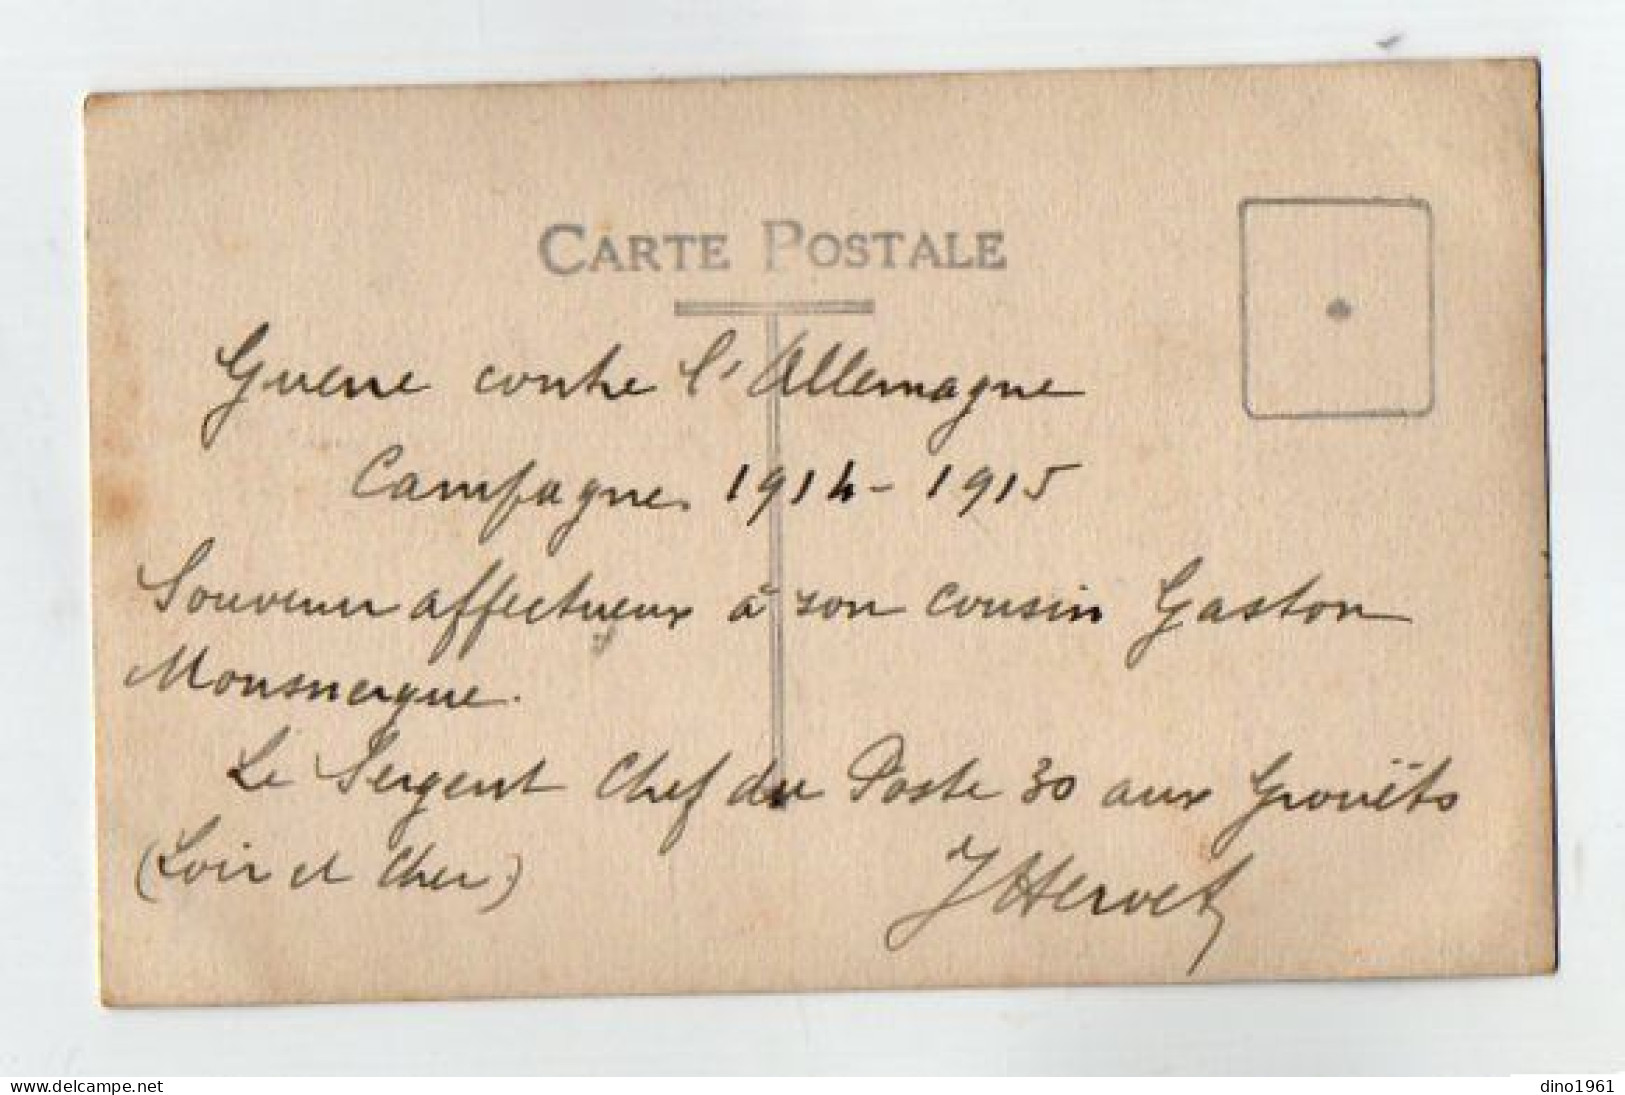 CARTE POSTALE
Guerre contre l'Allemagne
Campagne 1914-1915
Souvenir affectueux à son cousin Gaston
Monsnergue.
Le Sergent Chef du Poste 30 aux Grouëts
(Loir et Cher)
JHervet
delcampe.net
dino1961